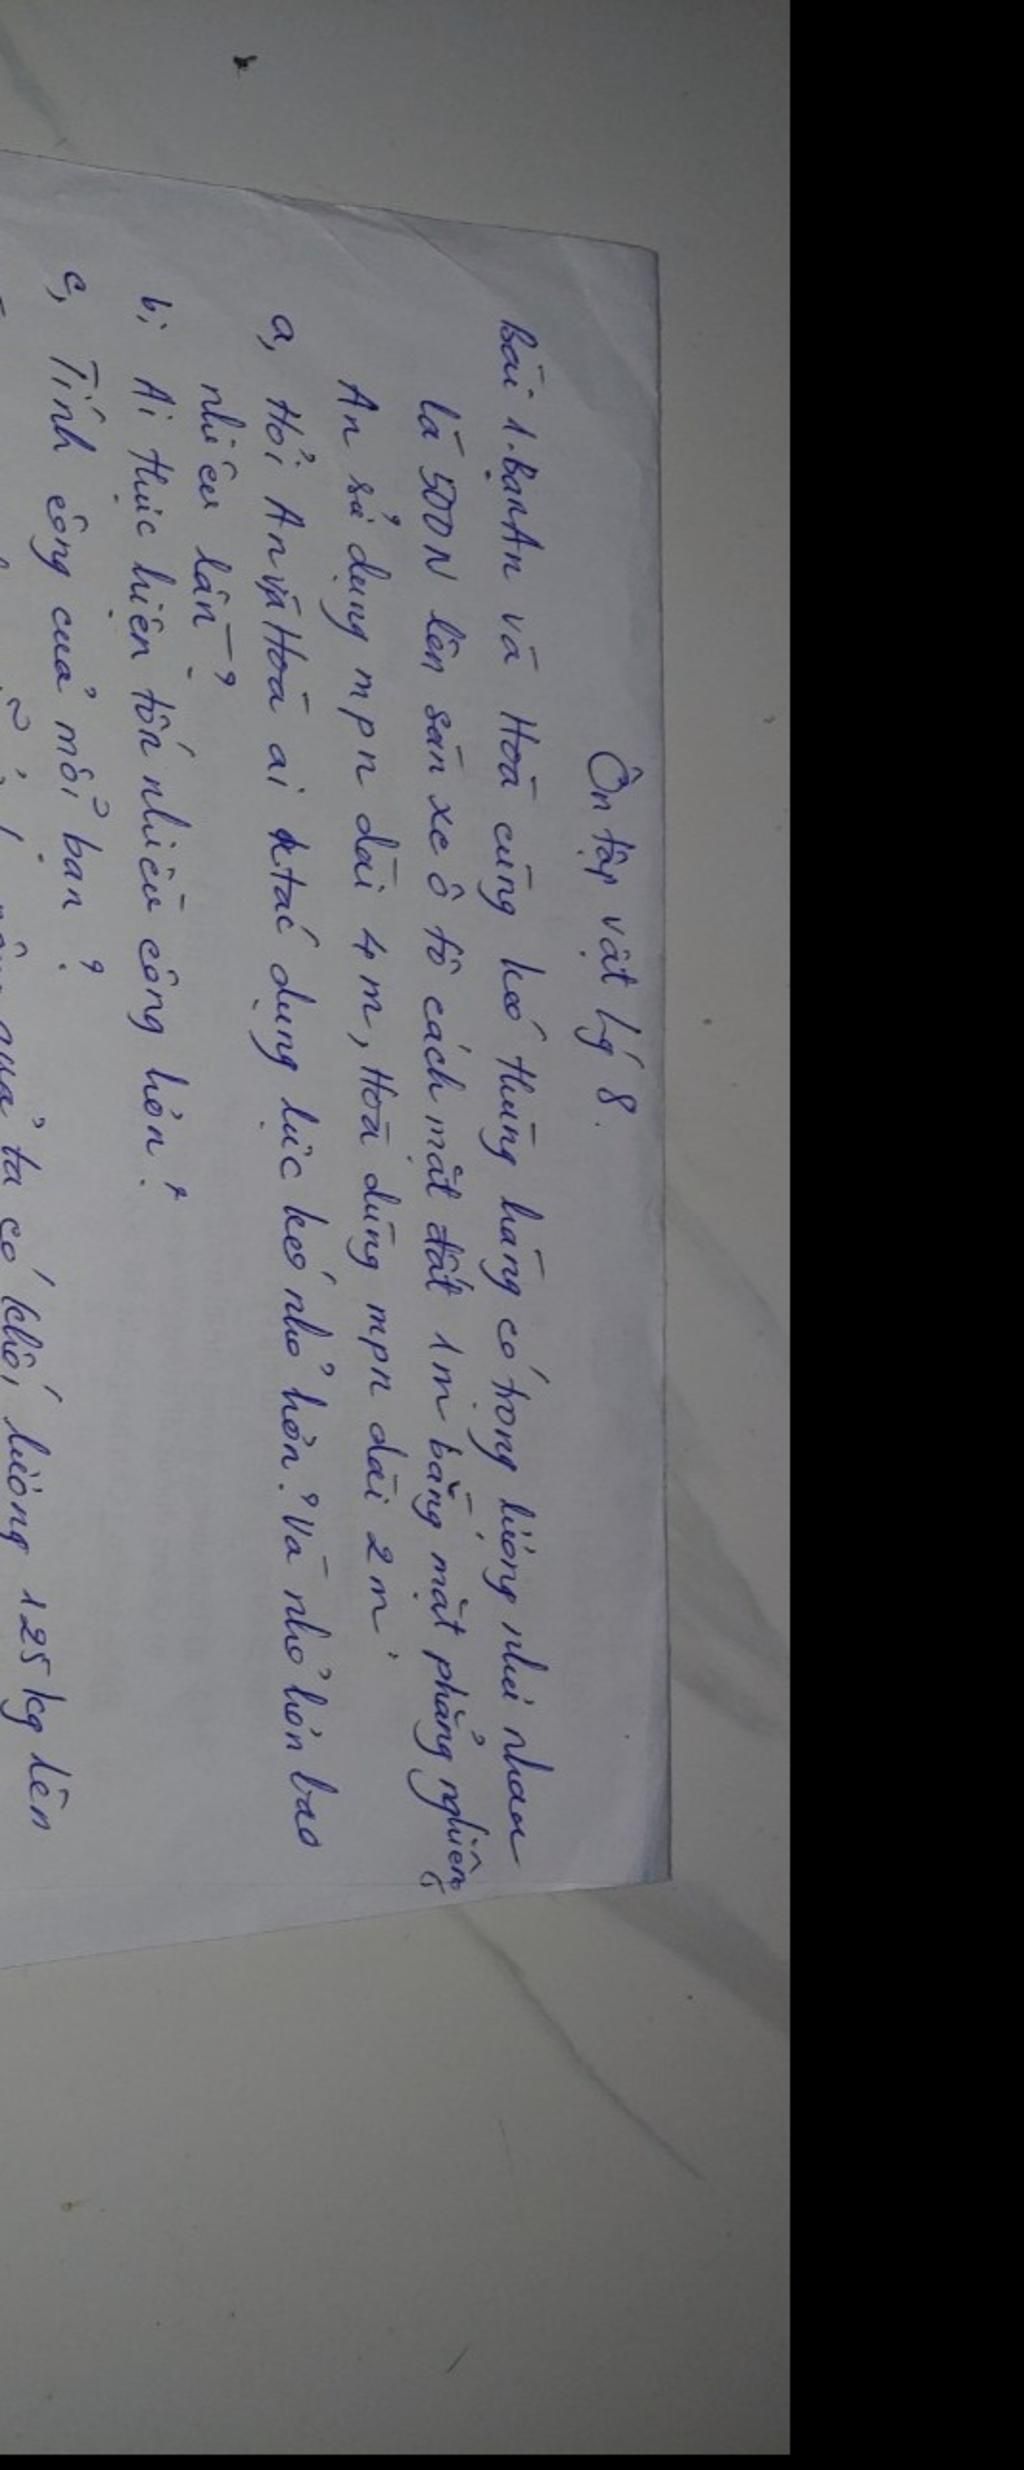 Ôn tập vật lý 8.
Bài 1. Bạn An và Hoà cùng kéo thùng hàng có trọng lượng như nhau
là 500N lên sàn xe ô tô cách mặt đất 1m bằng mặt phẳng nghiêng
An sử dụng mpn dài 4m, Hoà dùng mpn dài 2m.
a, Hỏi An và Hoà ai tác dụng lực kéo nhỏ hơn? Và nhỏ hơn bao
nhiêu lần?
b, Ai thực hiện tốn nhiều công hơn?
c, Tính công của mỗi bạn?
quả ta có khối lượng 125kg lên